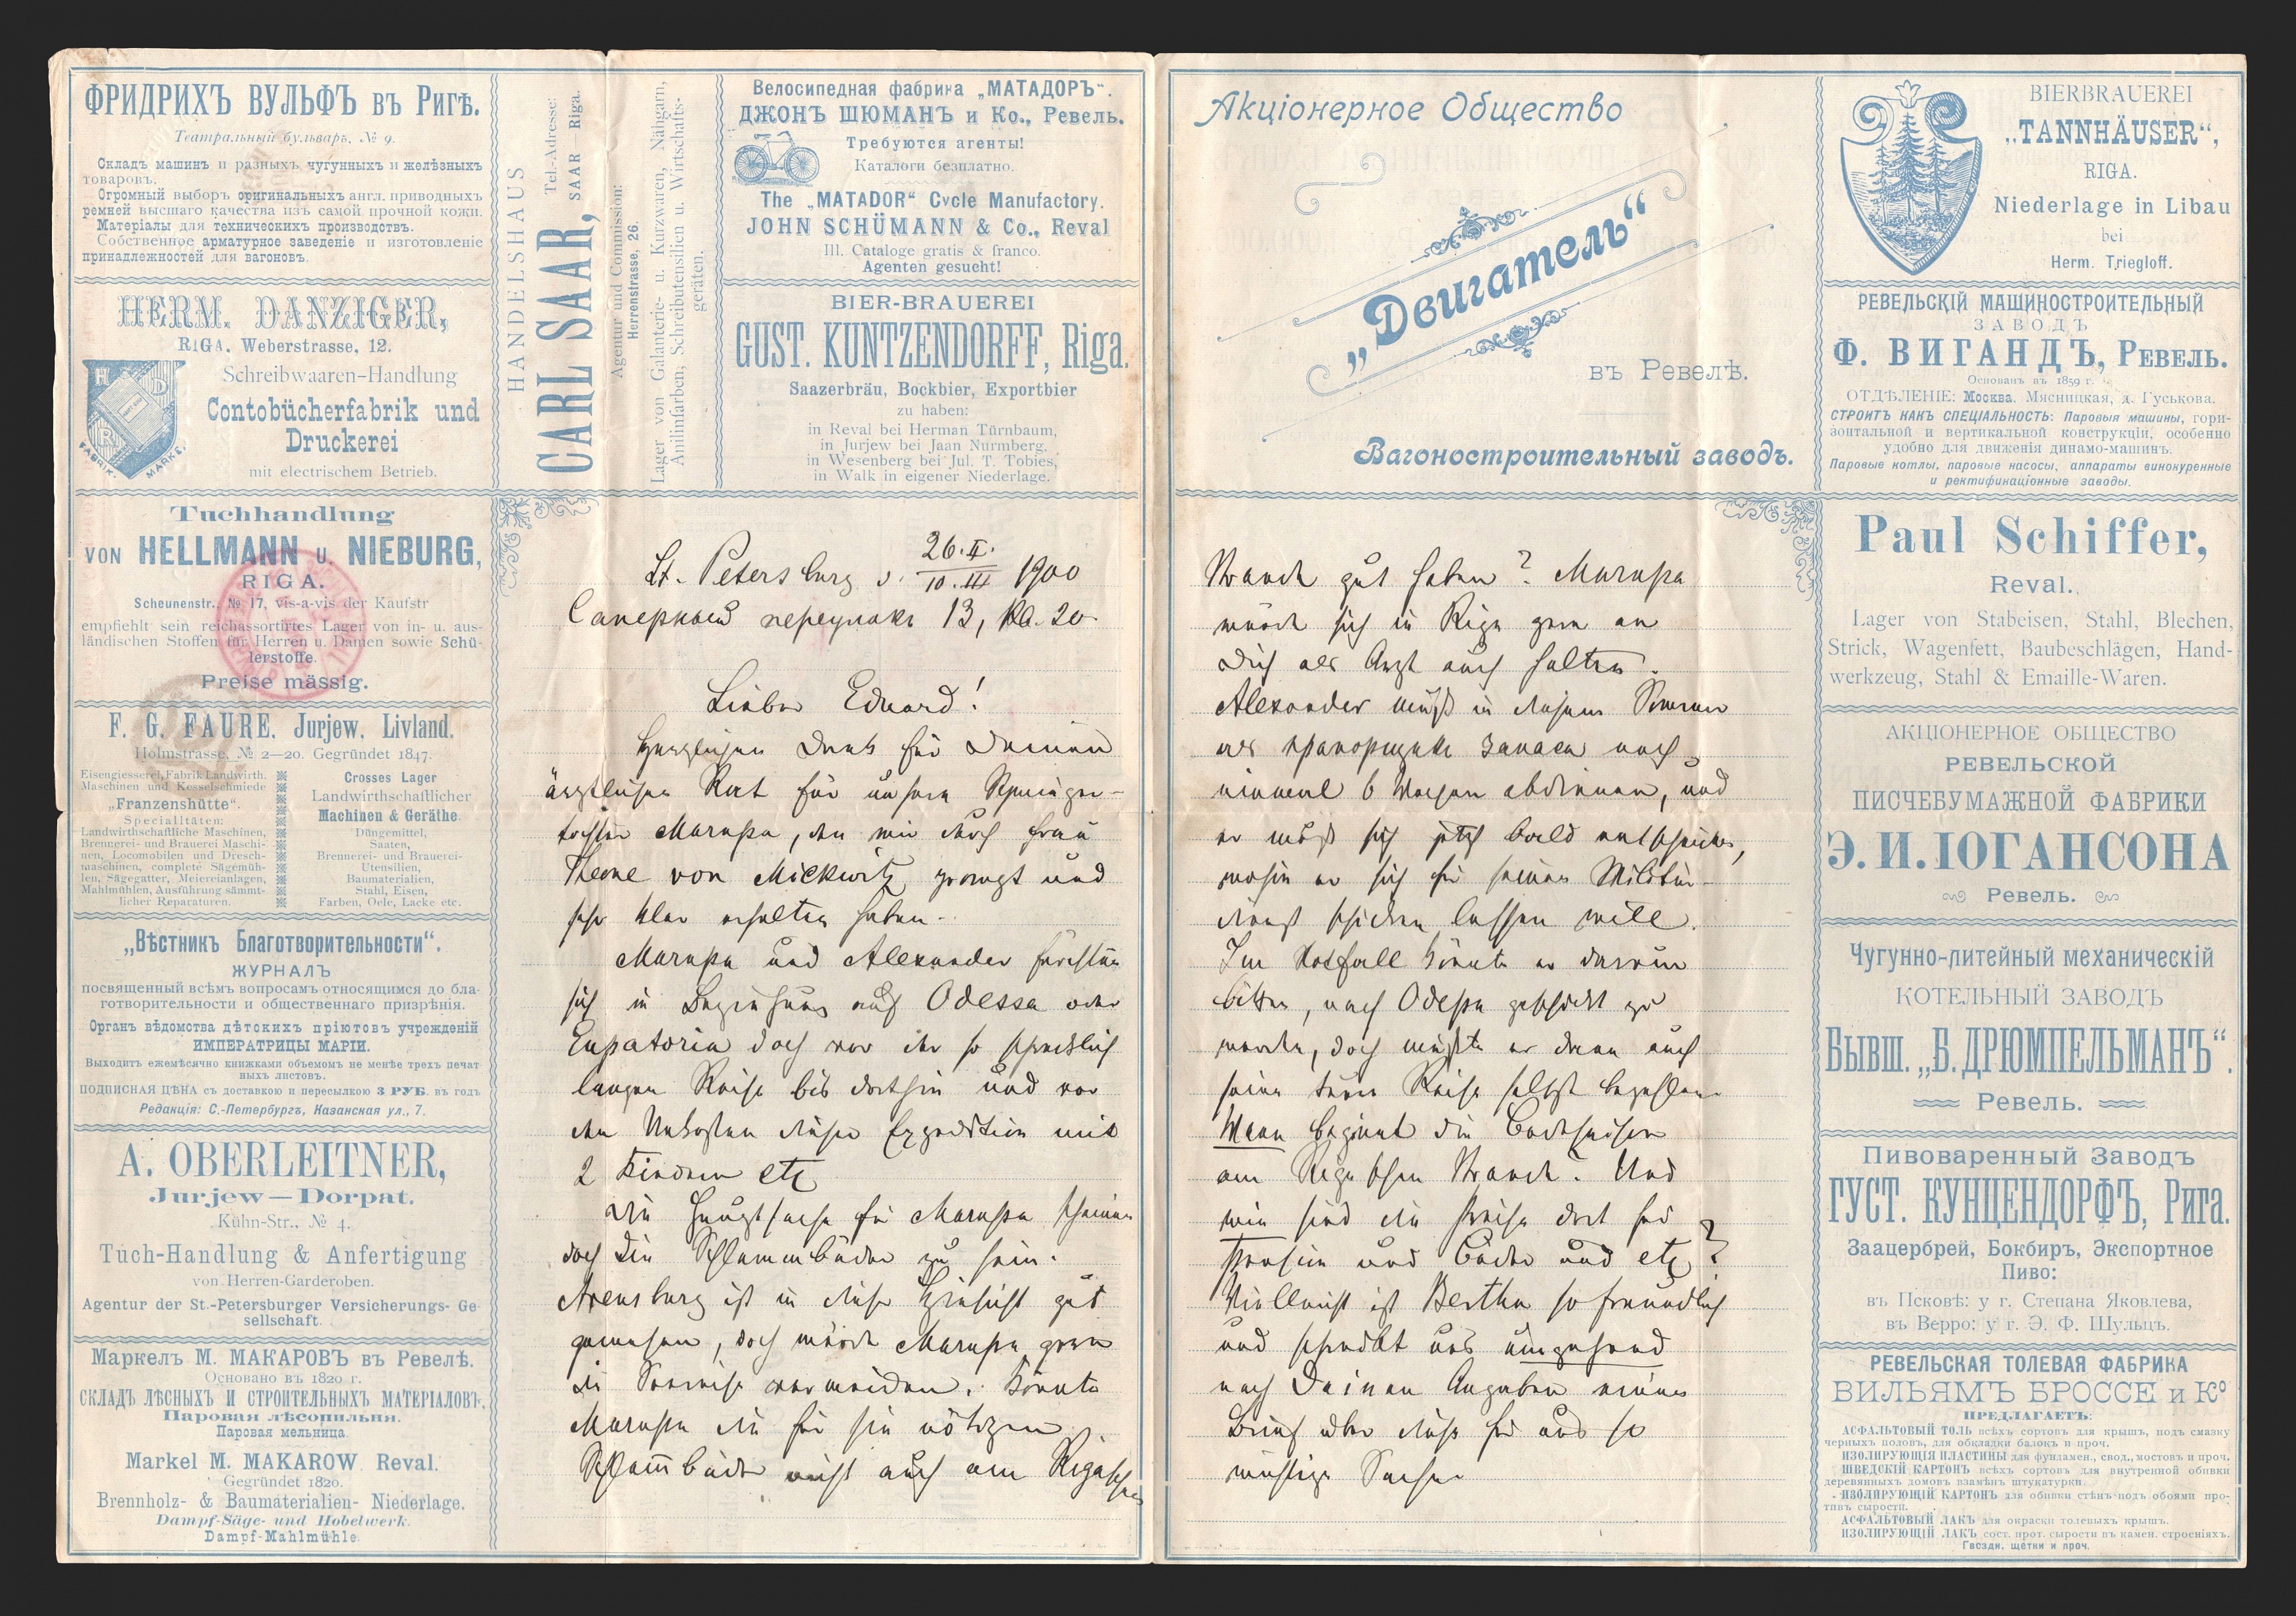 ФРИДРИХЪ ВУЛЬФЪ въ Ригѣ.
Театральный бульваръ, № 9.
Складъ машинъ и разныхъ чугунныхъ и желѣзныхъ
товаровъ.
Огромный выборъ оригинальныхъ англ. приводныхъ
ремней высшаго качества изъ самой прочной кожи.
Матеріалы для техническихъ производствъ.
Собственное арматурное заведеніе и изготовленіе
принадлежностей для вагоновъ.
HERM. DANZIGER,
RIGA, Weberstrasse, 12.
H D
R
FABRIK-MARKE.
Schreibwaaren-Handlung
Contobücherfabrik und
Druckerei
mit electrischem Betrieb.
HANDELSHAUS
Tel.-Adresse:
CARL SAAR, SAAR — Riga.
Agentur und Commission:
Herrenstrasse, 26.
Lager von Galanterie- u. Kurzwaren, Nähgarn,
Anilinfarben, Schreibutensilien u. Wirtschafts-
geräten.
Велосипедная фабрика „МАТАДОРЪ“.
ДЖОНЪ ШЮМАНЪ и Ко., Ревель.
Требуются агенты!
Каталоги безплатно.
The „MATADOR“ Cycle Manufactory.
JOHN SCHÜMANN & Co., Reval
Ill. Cataloge gratis & franco.
Agenten gesucht!
BIER-BRAUEREI
GUST. KUNTZENDORFF, Riga.
Saazerbräu, Bockbier, Exportbier
zu haben:
in Reval bei Herman Türnbaum,
in Jurjew bei Jaan Nurmberg,
in Wesenberg bei Jul. T. Tobies,
in Walk in eigener Niederlage.
Tuchhandlung
VON HELLMANN U. NIEBURG,
RIGA.
Scheunenstr., № 17, vis-a-vis der Kaufstr
empfiehlt sein reichassortirtes Lager von in- u. aus-
ländischen Stoffen für Herren u. Damen sowie Schü-
lerstoffe.
Preise mässig.
F. G. FAURE, Jurjew, Livland.
Holmstrasse, № 2—20. Gegründet 1847.
Eisengiesserei, Fabrik Landwirth.
Maschinen und Kesselschmiede
„Franzenshütte“.
Specialitäten:
Landwirthschaftliche Maschinen,
Brennerei- und Brauerei Maschi-
nen, Locomobilen und Dresch-
maschinen, complete Sägemüh-
len, Sägegatter, Meiereianlagen,
Mahlmühlen, Ausführung sämmt-
licher Reparaturen.
Grosses Lager
Landwirthschaftlicher
Machinen & Geräthe
Düngemittel,
Saaten,
Brennerei- und Brauerei-
Utensilien,
Baumaterialien,
Stahl, Eisen,
Farben, Oele, Lacke etc.
„Вѣстникъ Благотворительности“.
ЖУРНАЛЪ
посвященный всѣмъ вопросамъ относящимся до бла-
готворительности и общественнаго призрѣнія.
Органъ вѣдомства дѣтскихъ пріютовъ учрежденій
ИМПЕРАТРИЦЫ МАРІИ.
Выходитъ ежемѣсячно книжками объемомъ не менѣе трехъ печат
ныхъ листовъ.
ПОДПИСНАЯ ЦѢНА съ доставкою и пересылкою 3 РУБ. въ годъ
Редакція: С.-Петербургъ, Казанская ул., 7.
A. OBERLEITNER,
Jurjew—Dorpat.
Kühn-Str., № 4.
Tuch-Handlung & Anfertigung
von Herren-Garderoben.
Agentur der St.-Petersburger Versicherungs- Ge-
sellschaft.
Маркелъ М. МАКАРОВЪ въ Ревелѣ.
Основано въ 1820 г.
СКЛАДЪ ЛѢСНЫХЪ И СТРОИТЕЛЬНЫХЪ МАТЕРІАЛОВЪ.
Паровая лѣсопильни.
Паровая мельница.
Markel M. MAKAROW Reval.
Gegründet 1820.
Brennholz- & Baumaterialien- Niederlage.
Dampf-Säge- und Hobelwerk.
Dampf-Mahlmühle.
St. Petersburg d. 26.II./10.III 1900
Саперный переулокъ 13, кв. 20.
Lieber Eduard!
Herzlichen Dank für Deinen
ärztlichen Rat für unsere Schwieger-
tochter Marussa, den wir durch Frau
Leone von Mickwitz prompt und
sehr klar erhalten haben.
Marussa und Alexander fürchten
sich in Beziehung auf Odessa oder
Eupatoria doch vor der so schrecklich
langen Reise bis dorthin und vor
den Unkosten dieser Expedition mit
2 Kindern etc
Die Hauptsache für Marussa scheinen
doch die Schlammbäder zu sein.
Arensburg ist in dieser Hinsicht gut
gewesen, doch würde Marussa gern
die Seereise vermeiden. Könnte
Marussa die für sie nötigen
Schlammbäder nicht auch am Rigaschen
Акціонерное Общество
„Двигатель“
въ Ревелѣ.
Вагоностроительный заводъ.
Strande gut haben? Marussa
würde sich in Riga gern an
Dich als Arzt auch halten.
Alexander muß in diesem Sommer
als прапорщикъ запаса noch
einmal 6 Wochen abdienen, und
er muß sich jetzt bald entscheiden,
wohin er sich für seinen Militär-
dienst schicken lassen will.
Im Notfall könnte er darum
bitten, nach Odessa geschickt zu
werden, doch müßte er dann auch
seine teure Reise selbst bezahlen.
Wann beginnt die Badesaison
am Rigaschen Strande? Und
wie sind die Preise dort für
Pension und Bäder und etc?
Vielleicht ist Bertha so freundlich
und schreibt uns umgehend
nach Deinen Angaben einen
Brief über diese für uns so
wichtige Sache.
BIERBRAUEREI
„TANNHÄUSER“,
RIGA.
Niederlage in Libau
bei
Herm. Triegloff.
РЕВЕЛЬСКІЙ МАШИНОСТРОИТЕЛЬНЫЙ
ЗАВОДЪ
Ф. ВИГАНДЪ, РЕВЕЛЬ.
Основанъ въ 1859 г.
ОТДѢЛЕНІЕ: Москва. Мясницкая, д. Гуськова.
СТРОИТЪ КАКЪ СПЕЦІАЛЬНОСТЬ: Паровыя машины, гори-
зонтальной и вертикальной конструкціи, особенно
удобно для движенія динамо-машинъ.
Паровые котлы, паровые насосы, аппараты винокуренные
и ректификаціонные заводы.
Paul Schiffer,
Reval.
Lager von Stabeisen, Stahl, Blechen,
Strick, Wagenfett, Baubeschlägen, Hand-
werkzeug, Stahl & Emaille-Waren.
АКЦІОНЕРНОЕ ОБЩЕСТВО
РЕВЕЛЬСКОЙ
ПИСЧЕБУМАЖНОЙ ФАБРИКИ
Э. И. ІОГАНСОНА
Ревель.
Чугунно-литейный механическій
КОТЕЛЬНЫЙ ЗАВОДЪ
БЫВШ. „Б. ДРЮМПЕЛЬМАНЪ“.
Ревель.
Пивоваренный Заводъ
ГУСТ. КУНЦЕНДОРФЪ, Рига.
Заацербрей, Бокбиръ, Экспортное
Пиво:
въ Псковѣ: у г. Степана Яковлева,
въ Верро: у г. Э. Ф. Шульцъ.
РЕВЕЛЬСКАЯ ТОЛЕВАЯ ФАБРИКА
ВИЛЬЯМЪ БРОССЕ и Ко
ПРЕДЛАГАЕТЪ:
АСФАЛЬТОВЫЙ ТОЛЬ всѣхъ сортовъ для крышъ, подъ смазку
черныхъ половъ, для обкладки балокъ и проч.
ИЗОЛИРУЮЩІЯ ПЛАСТИНЫ для фундамен., свод., мостовъ и проч.
ШВЕДСКІЙ КАРТОНЪ всѣхъ сортовъ для внутренной обивки
деревянныхъ домовъ взамѣнъ штукатурки.
ИЗОЛИРУЮЩІЙ КАРТОНЪ для обивки стѣнъ подъ обоями про-
тивъ сырости.
АСФАЛЬТОВЫЙ ЛАКЪ для окраски толевыхъ крышъ.
ИЗОЛИРУЮЩІЙ ЛАКЪ сост. прот. сырости въ камен. строеніяхъ.
Гвозди, щетки и проч.